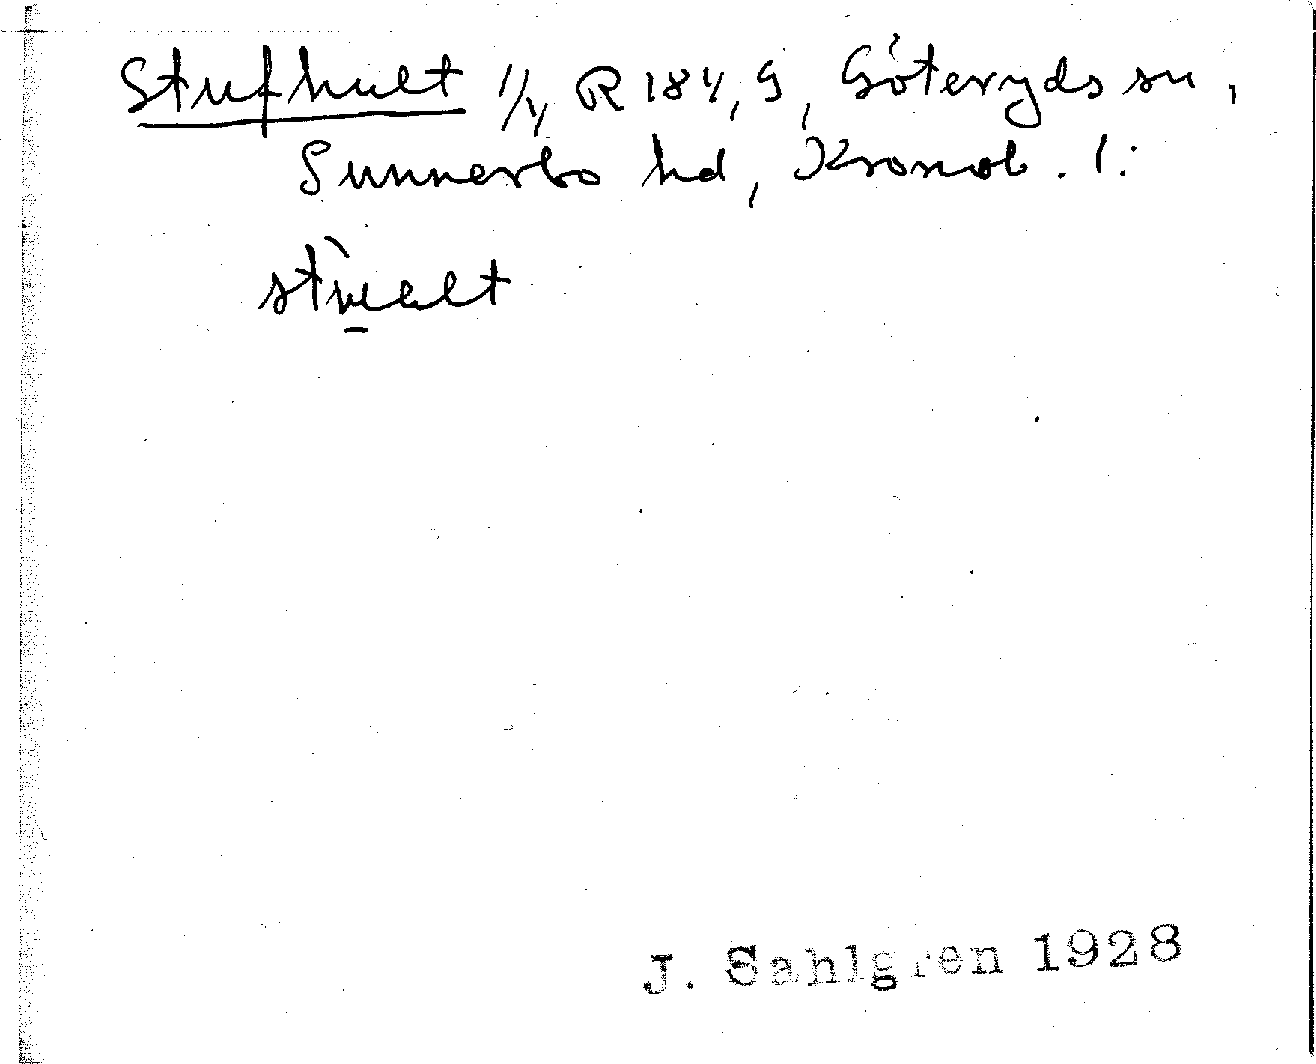 Stufhult 1/4 R 184, 9, Göteryds sn,
Sunnerbo hd, Kronob. l:
J. Sahlgren 1928